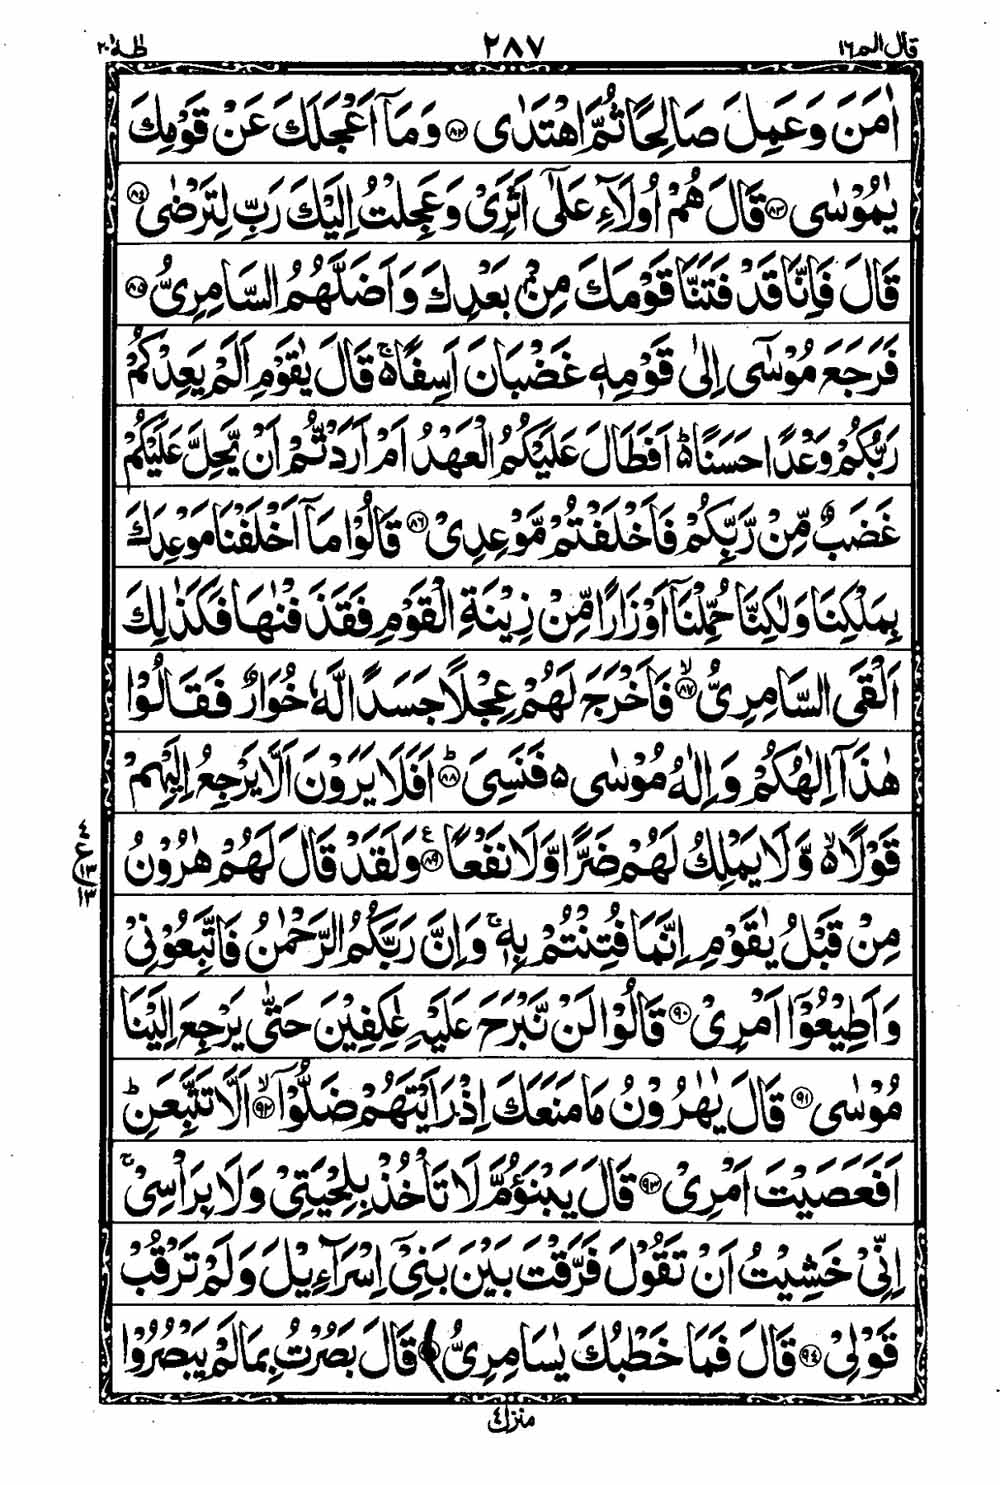 قال الم ١٦ ٢٨٧ طه ٢٠
اٰمَنَ وَعَمِلَ صَالِحًا ثُمَّ اهْتَدٰى ﴿٨٢﴾ وَمَاۤ اَعْجَلَكَ عَنْ قَوْمِكَ
يٰمُوْسٰى ﴿٨٣﴾ قَالَ هُمْ اُولَآءِ عَلٰۤى اَثَرِىْ وَعَجِلْتُ اِلَيْكَ رَبِّ لِتَرْضٰى ﴿٨٤﴾
قَالَ فَاِنَّا قَدْ فَتَنَّا قَوْمَكَ مِنْۢ بَعْدِكَ وَاَضَلَّهُمُ السَّامِرِىُّ ﴿٨٥﴾
فَرَجَعَ مُوْسٰۤى اِلٰى قَوْمِهٖ غَضْبَانَ اَسِفًا ۬ۚ قَالَ يٰقَوْمِ اَلَمْ يَعِدْكُمْ
رَبُّكُمْ وَعْدًا حَسَنًا ۬ؕ اَفَطَالَ عَلَيْكُمُ الْعَهْدُ اَمْ اَرَدْتُّمْ اَنْ يَّحِلَّ عَلَيْكُمْ
غَضَبٌ مِّنْ رَّبِّكُمْ فَاَخْلَفْتُمْ مَّوْعِدِىْ ﴿٨٦﴾ قَالُوْا مَاۤ اَخْلَفْنَا مَوْعِدَكَ
بِمَلْكِنَا وَلٰكِنَّا حُمِّلْنَاۤ اَوْزَارًا مِّنْ زِيْنَةِ الْقَوْمِ فَقَذَفْنٰهَا فَكَذٰلِكَ
اَلْقَى السَّامِرِىُّ ۙ﴿٨٧﴾ فَاَخْرَجَ لَهُمْ عِجْلًا جَسَدًا لَّهٗ خُوَارٌ فَقَالُوْا
هٰذَاۤ اِلٰهُكُمْ وَاِلٰهُ مُوْسٰى ۬ فَنَسِىَ ؕ﴿٨٨﴾ اَفَلَا يَرَوْنَ اَلَّا يَرْجِعُ اِلَيْهِمْ
قَوْلًا ۬ۙ وَّلَا يَمْلِكُ لَهُمْ ضَرًّا وَّلَا نَفْعًا ﴿٨٩﴾ ع وَلَقَدْ قَالَ لَهُمْ هٰرُوْنُ
مِنْ قَبْلُ يٰقَوْمِ اِنَّمَا فُتِنْتُمْ بِهٖ ۚ وَاِنَّ رَبَّكُمُ الرَّحْمٰنُ فَاتَّبِعُوْنِىْ
وَاَطِيْعُوْۤا اَمْرِىْ ﴿٩٠﴾ قَالُوْا لَنْ نَّبْرَحَ عَلَيْهِ عٰكِفِيْنَ حَتّٰى يَرْجِعَ اِلَيْنَا
مُوْسٰى ﴿٩١﴾ قَالَ يٰهٰرُوْنُ مَا مَنَعَكَ اِذْ رَاَيْتَهُمْ ضَلُّوْۤا ۙ﴿٩٢﴾ اَلَّا تَتَّبِعَنِ ؕ
اَفَعَصَيْتَ اَمْرِىْ ﴿٩٣﴾ قَالَ يَبْنَؤُمَّ لَا تَاْخُذْ بِلِحْيَتِىْ وَلَا بِرَاْسِىْ ۚ
اِنِّىْ خَشِيْتُ اَنْ تَقُوْلَ فَرَّقْتَ بَيْنَ بَنِىْۤ اِسْرَآءِيْلَ وَلَمْ تَرْقُبْ
قَوْلِىْ ﴿٩٤﴾ قَالَ فَمَا خَطْبُكَ يٰسَامِرِىُّ قَالَ بَصُرْتُ بِمَا لَمْ يَبْصُرُوْا
منزل ٤